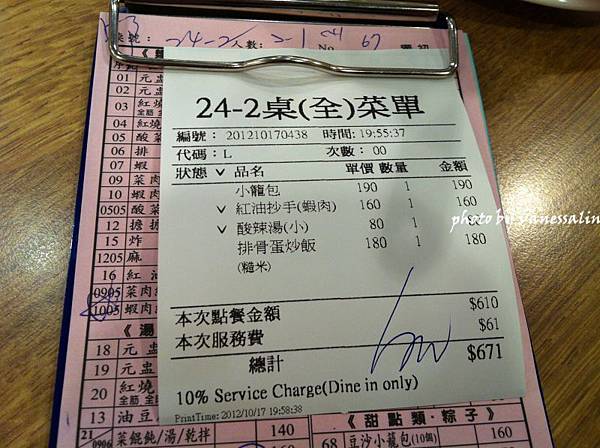 桌號: 24-2 人數: 2-1 No. 67
24-2桌(全)菜單
編號: 201210170438 時間: 19:55:37
代碼: L 次數: 00
狀態 ∨ 品名 單價 數量 金額
小籠包 190 1 190
∨ 紅油抄手(蝦肉) 160 1 160
∨ 酸辣湯(小) 80 1 80
排骨蛋炒飯 180 1 180
(糙米)
本次點餐金額 $610
本次服務費 $61
總計 $671
10% Service Charge(Dine in only)
PrintTime: 2012/10/17 19:58:38
photo by vanessalin
01 元盅
02 元盅
03 紅燒
04 紅燒
05 酸菜
06 排
07 蝦
09 菜肉
10 蝦肉
0505 酸菜
12 擔擔
15 炸
1205 麻
16 紅油
0905 菜肉
1005 蝦肉
《湯
18 元盅
19 元盅
20 紅燒
13 油豆
21/0906 菜餛飩/湯/乾拌 140
160
《甜點類‧粽子》
68 豆沙小籠包(10個) 160